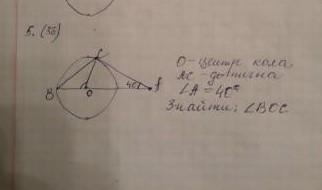 5. (3б)
C
B
O
40°
A
O - центр кола
AC - дотична
∠A = 40°
Знайти: ∠BOC